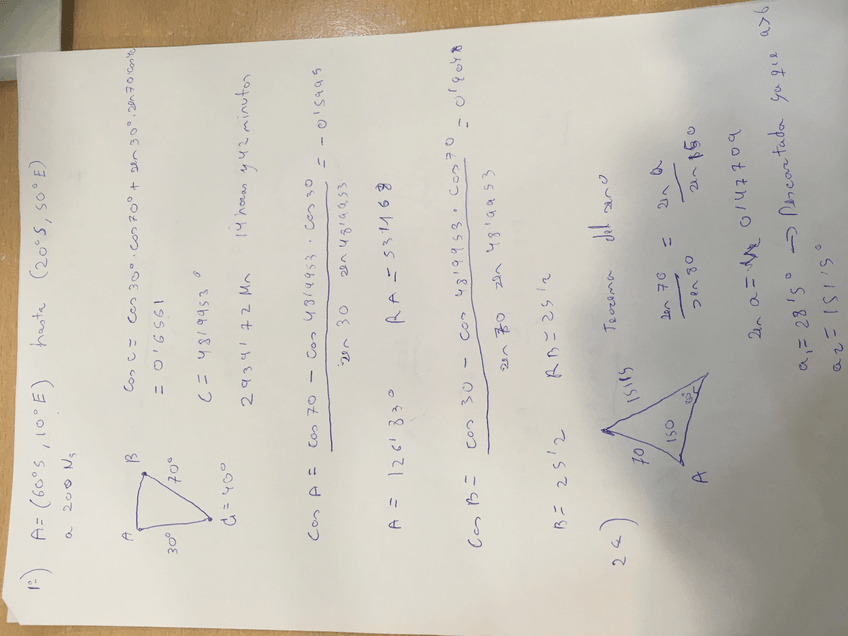 1º) A = (60°S, 10°E) hasta (20°S, 50°E)
a 200 Ns
A B
30° 70°
d = 40°
Cos c = cos 30° · cos 70° + sen 30° · sen 70 · cos 40
= 0'6561
C = 48'9953°
2939'72 Mn 14 horas y 42 minutos
Cos A = cos 70 - cos 48'9953 · cos 30 / sen 30 sen 48'9953 = - 0'5995
A = 126'830 RA = 53'1168
Cos B = cos 30 - cos 48'9953 · cos 70 / sen 70 sen 48'9953 = 0'9048
B = 25'2 RB = 25'2
2a) Teorema del seno
70 151'5
150
A
sen 70 / sen 80 = sen a / sen 150
sen a = 0'47709
a1 = 28'5° → Descartada ya que a>b
a2 = 151'5°